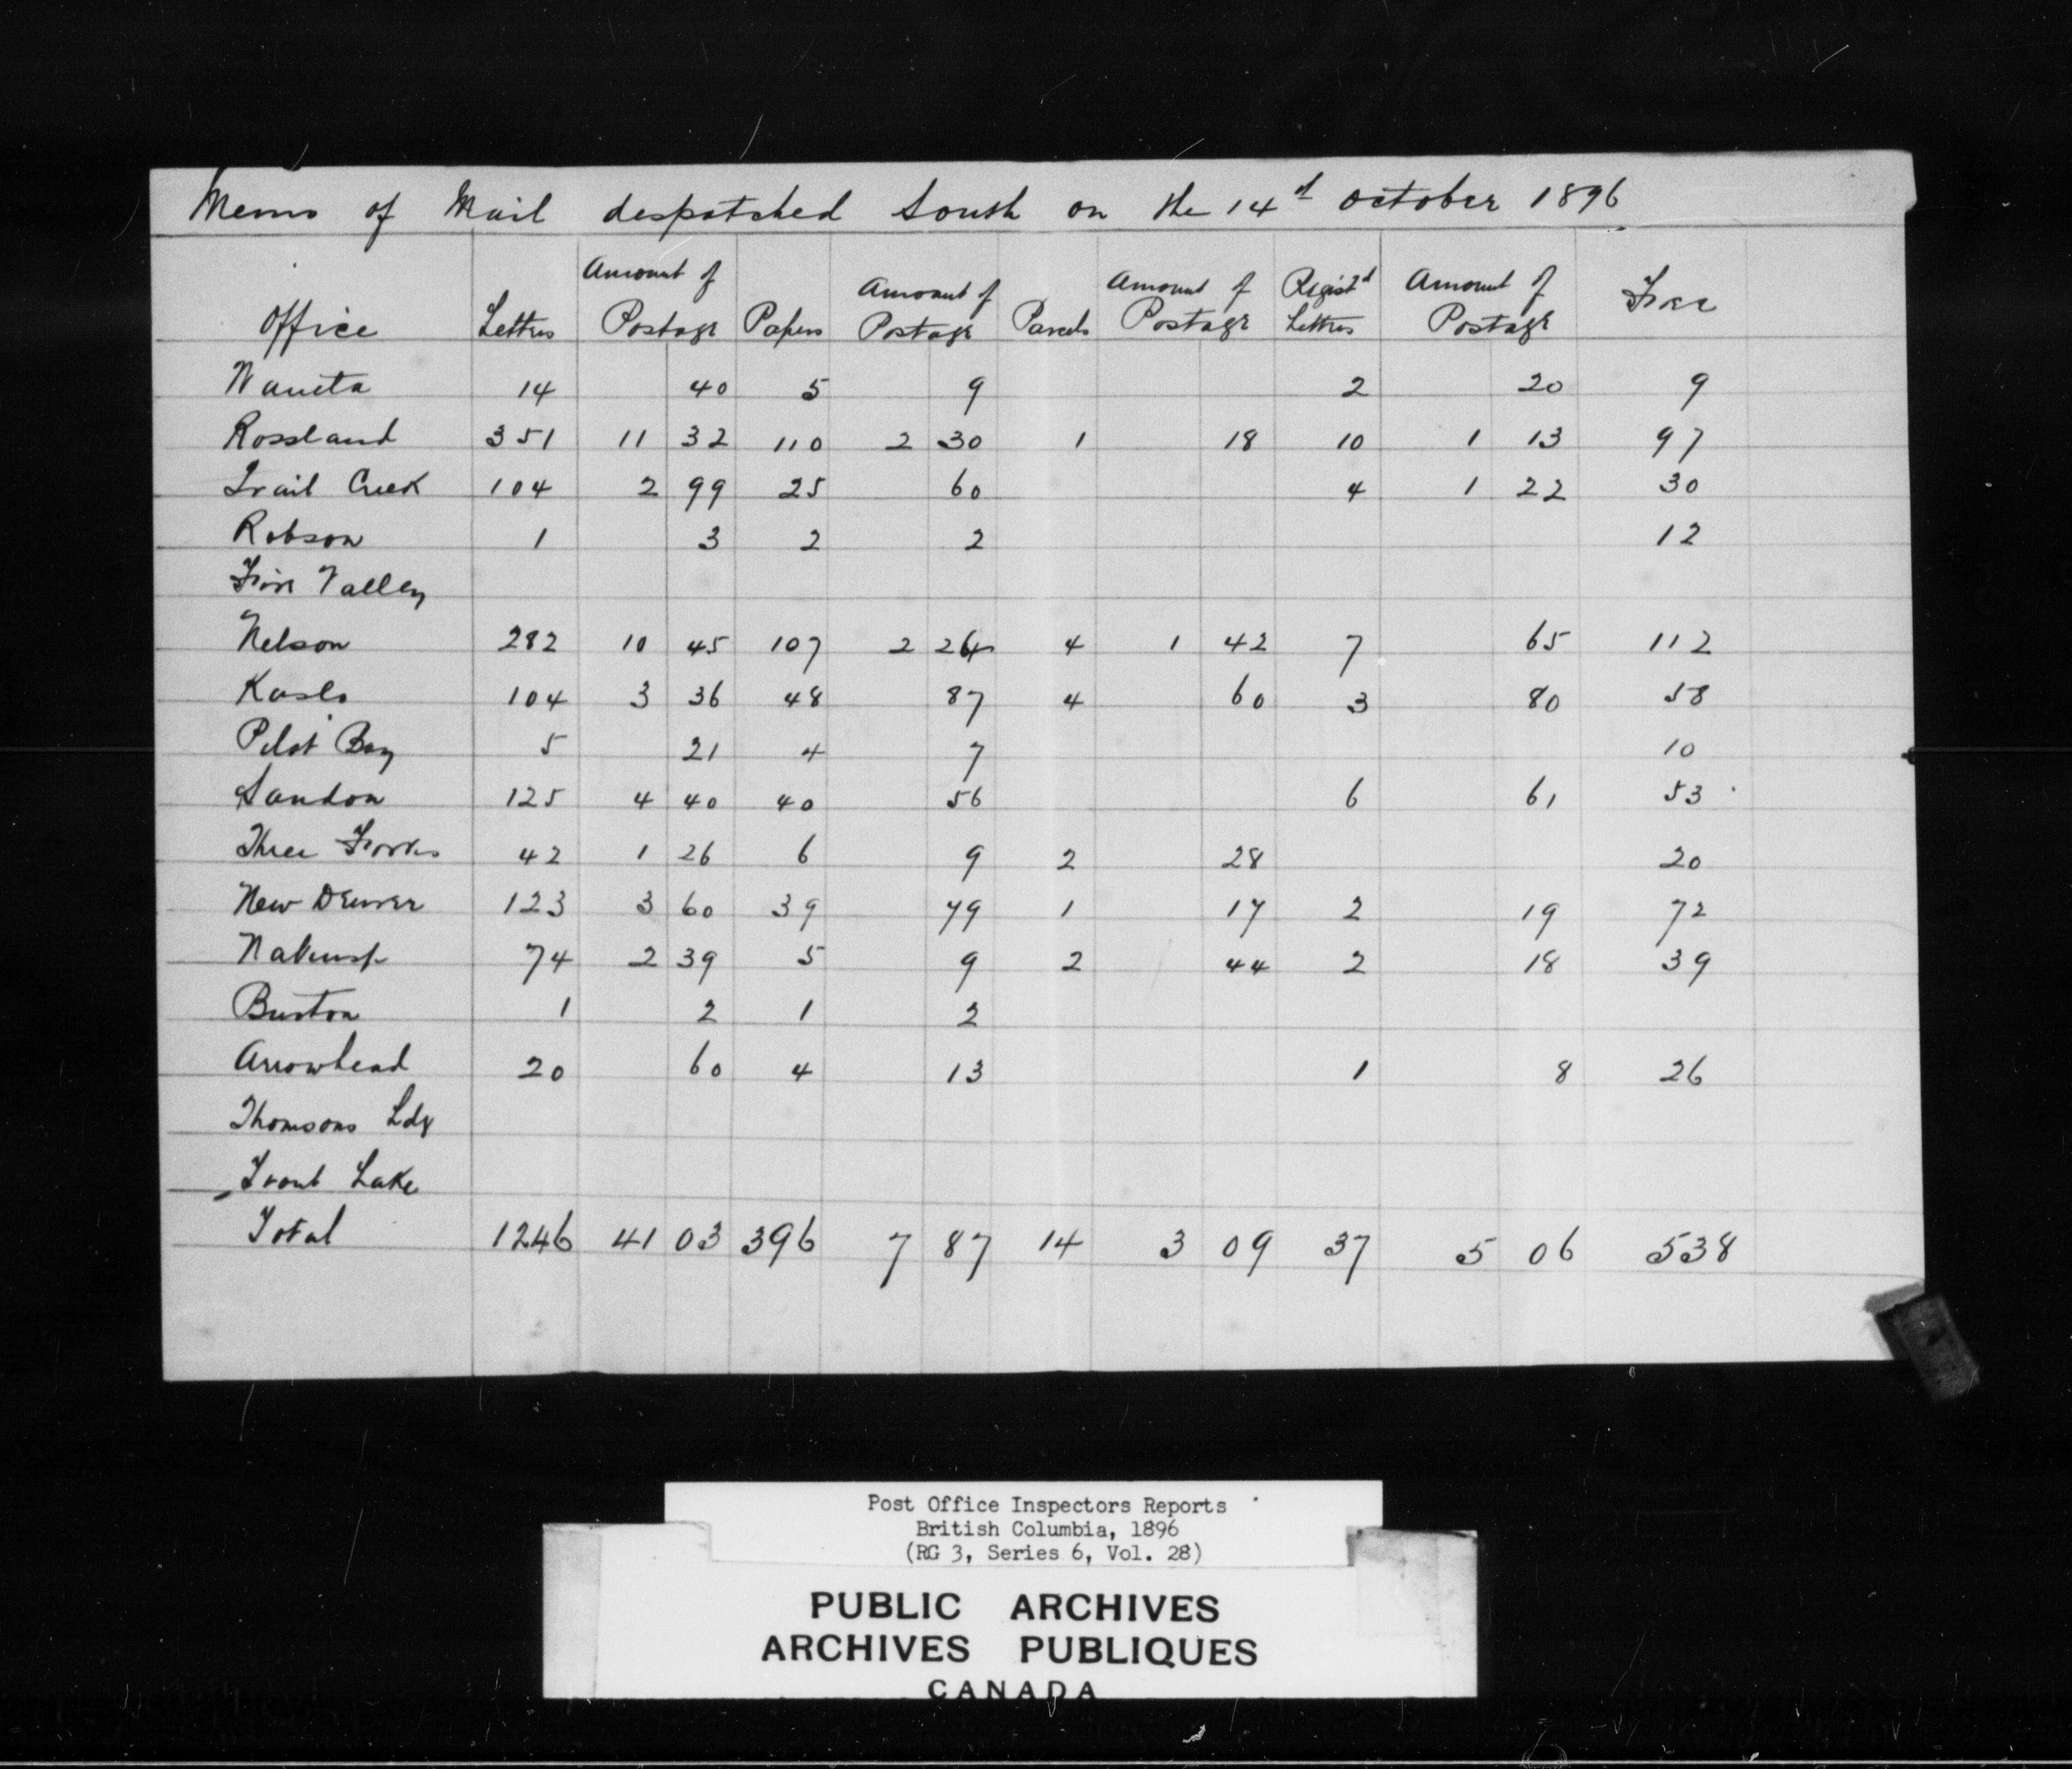 Memo of Mail despatched South on the 14th October 1896
Office Letters Amount of Postage Papers Amount of Postage Parcels Amount of Postage Regist'd Letters Amount of Postage Free
Waneta 14 40 5 9 2 20 9
Rossland 351 11 32 110 2 30 1 18 10 1 13 97
Trail Creek 104 2 99 25 60 4 1 22 30
Robson 1 3 2 2 12
Fire Valley
Nelson 282 10 45 107 2 24 4 1 42 7 65 112
Kaslo 104 3 36 48 87 4 60 3 80 58
Pilot Bay 5 21 4 7 10
Sandon 125 4 40 40 56 6 61 53
Three Forks 42 1 26 6 9 2 28 20
New Denver 123 3 60 39 79 1 17 2 19 72
Nakusp 74 2 39 5 9 2 44 2 18 39
Burton 1 2 1 2
Arrowhead 20 60 4 13 1 8 26
Thomsons Ldg
Trout Lake
Total 1246 41 03 396 7 87 14 3 09 37 5 06 538
Post Office Inspectors Reports
British Columbia, 1896
(RG 3, Series 6, Vol. 28)
PUBLIC ARCHIVES
ARCHIVES PUBLIQUES
CANADA